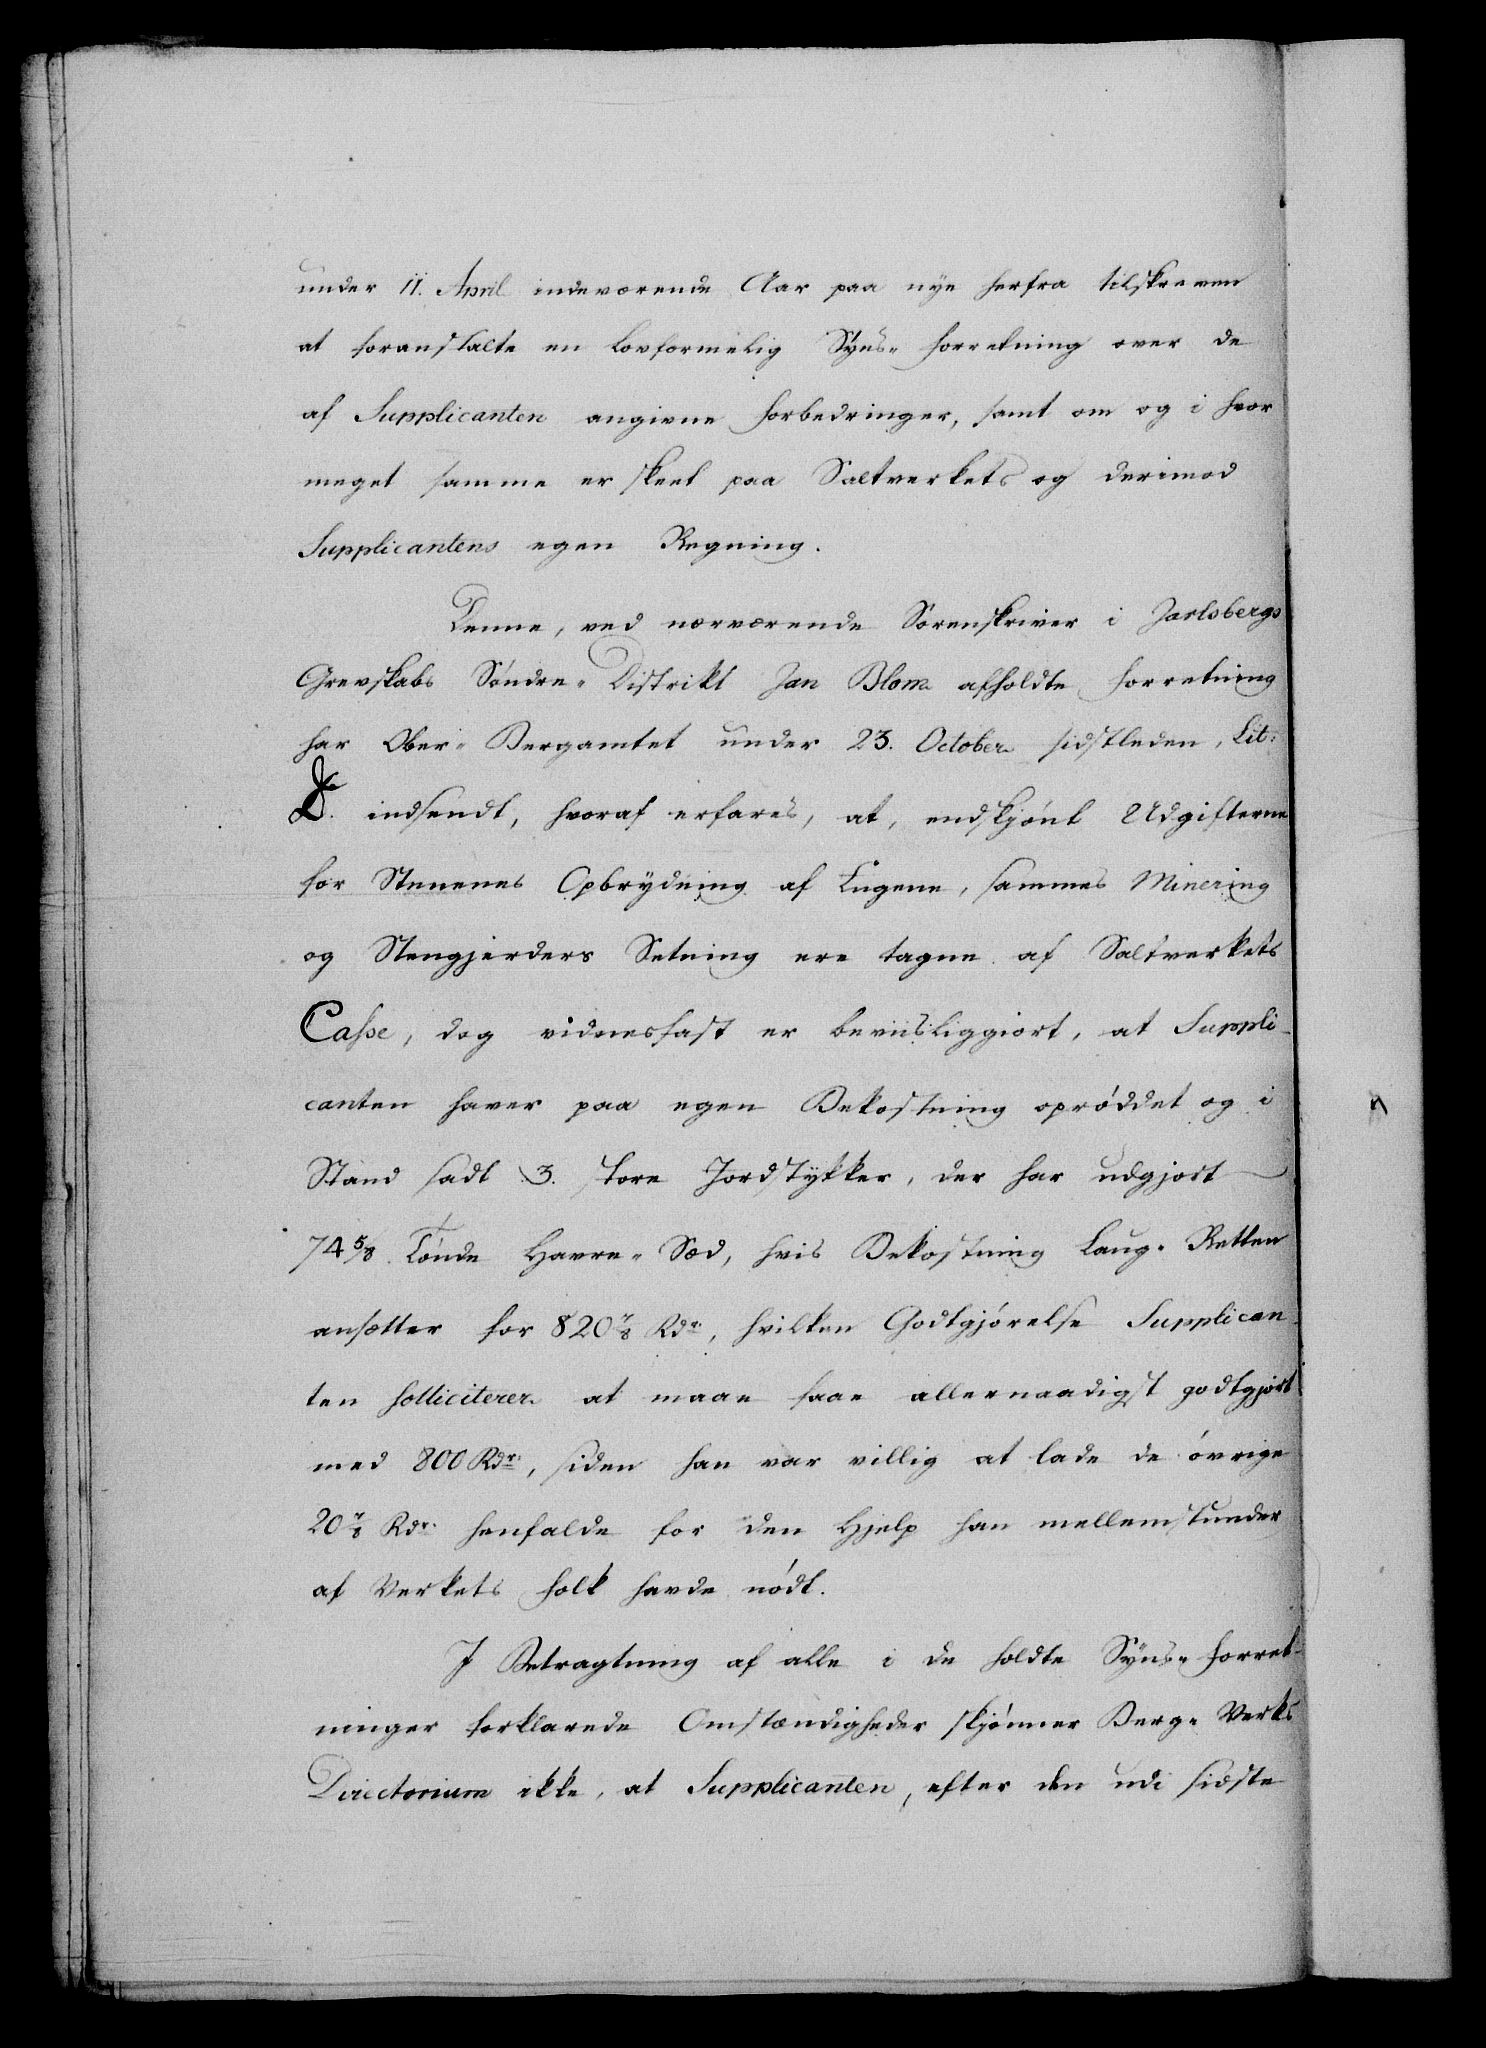 under 11. April indeværende Aar paa nye herfra tilskreven
at foranstalte en lovformelig Syns- forretning over de
af Supplicanten angivne forbedringer, samt om og i hvor
meget samme er skeet paa Saltverkets og derimod
Supplicantens egen Regning.
Denne, ved nærværende Sorenskriver i Jarlsbergs
Grevskabs Søndre- Distrikt Jan Blom afholdte forretning
har Ober- Bergamtet under 23. October sidstleden, Lit:
D. indsendt, hvoraf erfares, at, endskjønt Udgifterne
for Stenenes Opbrydning af Engene, sammes Minering
og Stengjerders Setning ere tagne af Saltverkets
Casse, dog vidnesfast er beviisliggiort, at Suppli-
canten haver paa egen Bekostning oprøddet og i
Stand sadt 3. store Jordstykker, der har udgjort
74 5/8 Tønde Havre- Sæd, hvis Bekostning Laug- Retten
ansætter for 820 7/8 Rdr., hvilken Godtgjørelse Supplican-
ten solliciterer at maae faae allernaadigst godtgjort
med 800 Rdr., siden han var villig at lade de øvrige
20 7/8 Rdr. henfalde for den Hjelp han mellemstunder
af Verkets folk havde nødt.
I Betragtning af alle i de holdte Syns- forret-
ninger forklarede Omstændigheder skjønner Berg- Verks
Directorium ikke, at Supplicanten, efter den udi sidste